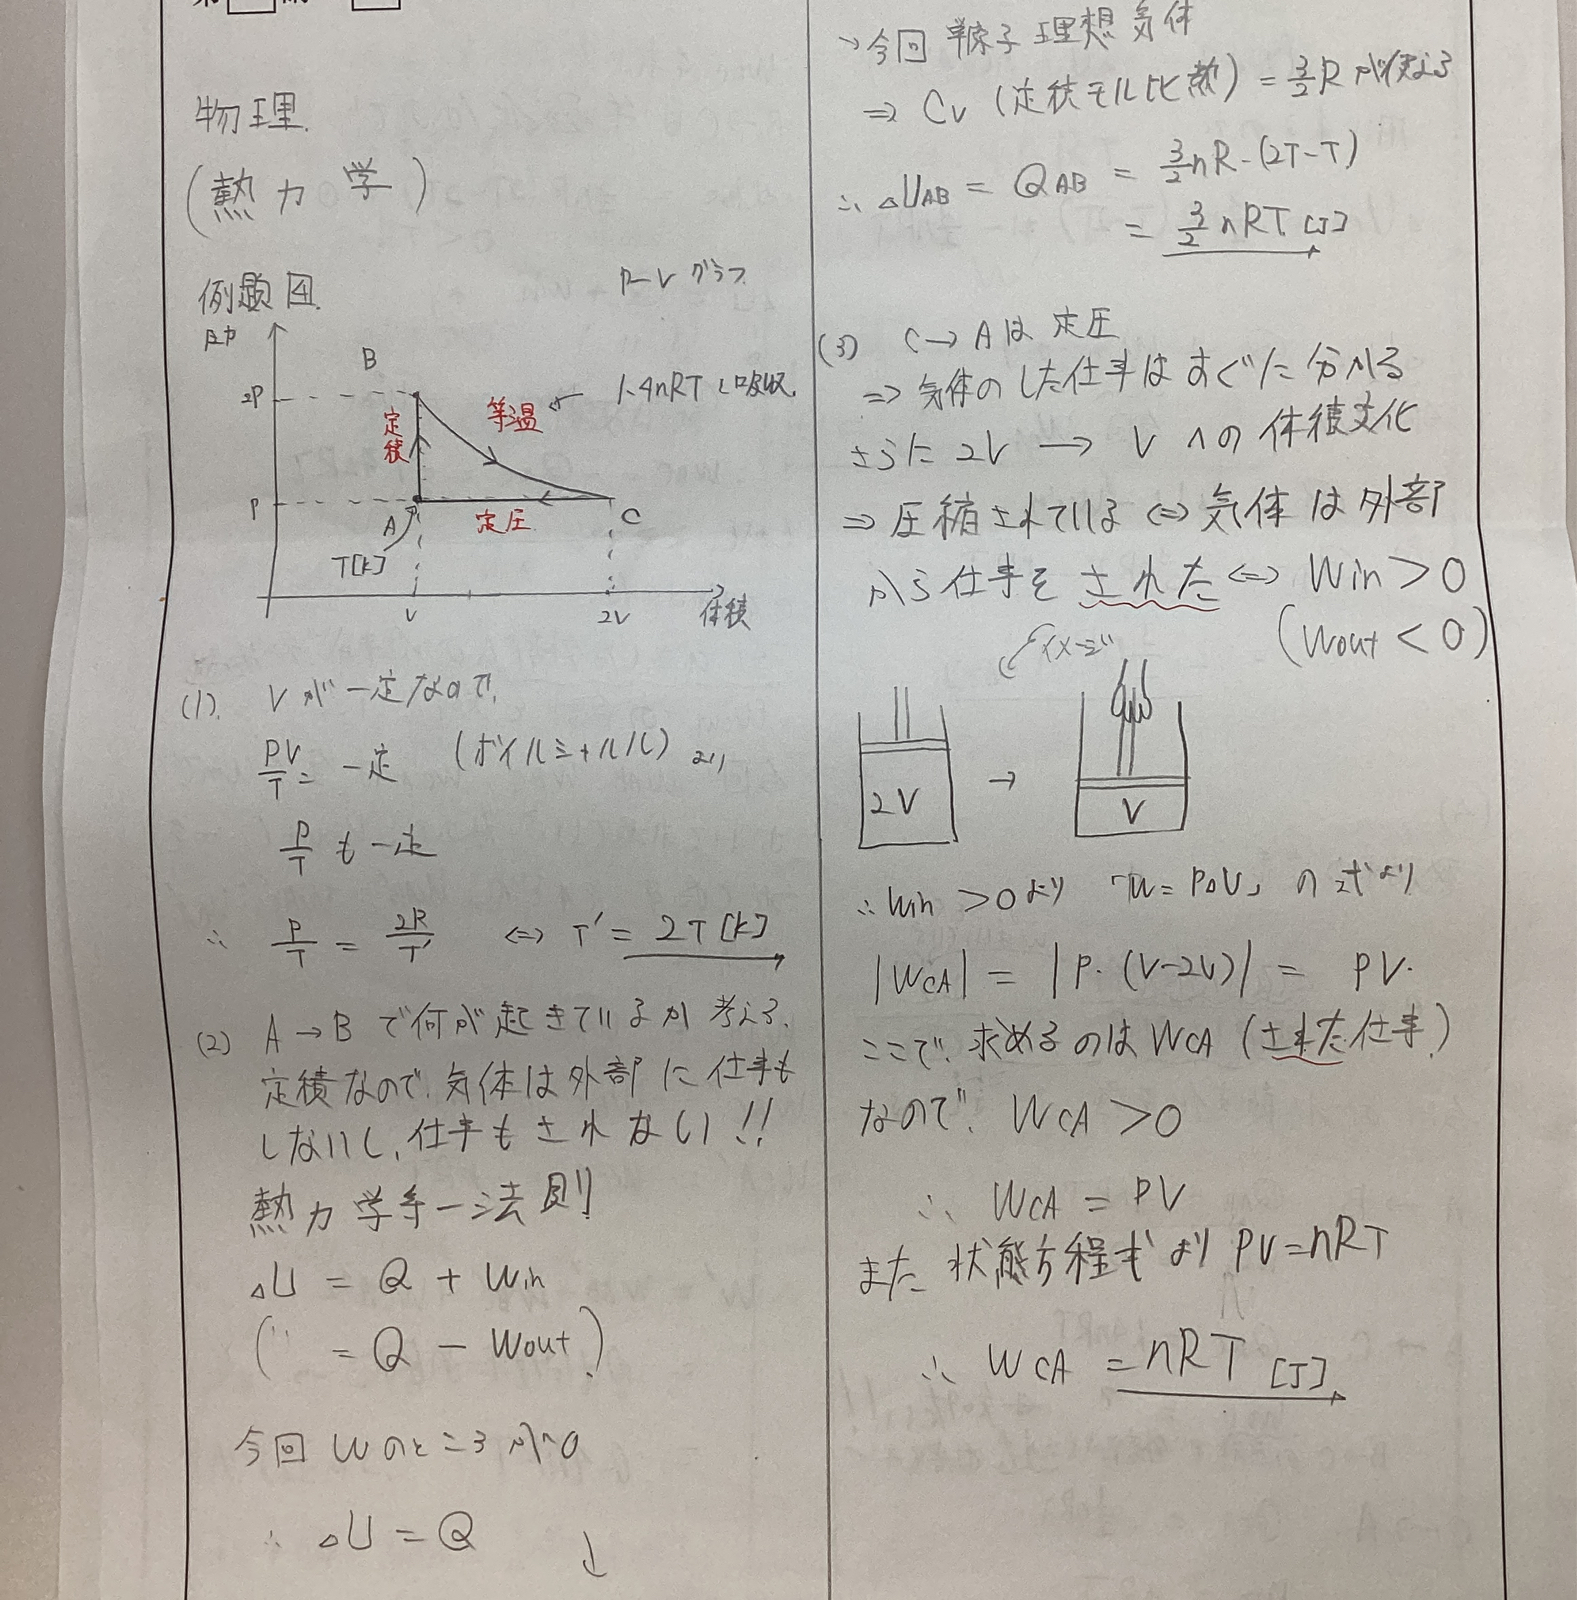 物理.
(熱力学)
例題図.
P-V グラフ
圧力
B
2P
定積
等温
1.4nRT [J]吸収.
P
A
定圧
C
T[K]
V
2V
体積
(1). Vが一定なので,
PV/T = 一定 (ボイルシャルル) より
P/T も一定
∴ P/T = 2P/T' ⇔ T' = 2T [K]
(2) A→Bで何が起きているか考える.
定積なので,気体は外部に仕事も
しないし,仕事もされない!!
熱力学第一法則
△U = Q + Win
( 〃 = Q - Wout)
今回Wのところが0
∴ △U = Q ↓
→今回 単原子理想気体
⇒ Cv (定積モル比熱) = 3/2 R が使える
∴ △UAB = QAB = 3/2 nR・(2T-T)
= 3/2 nRT [J]
(3) C→Aは定圧
⇒ 気体のした仕事はすぐに分かる
さらに 2V → V への体積変化
⇒ 圧縮されている ⇔ 気体は外部
から仕事をされた ⇔ Win > 0
(Wout < 0)
イメージ
2V → V
∴ Win > 0より 「W = P△V」の式より
|WCA| = |P・(V-2V)| = PV.
ここで,求めるのはWCA (された仕事)
なので, WCA > 0
∴ WCA = PV
また 状態方程式より PV=nRT
∴ WCA = nRT [J]